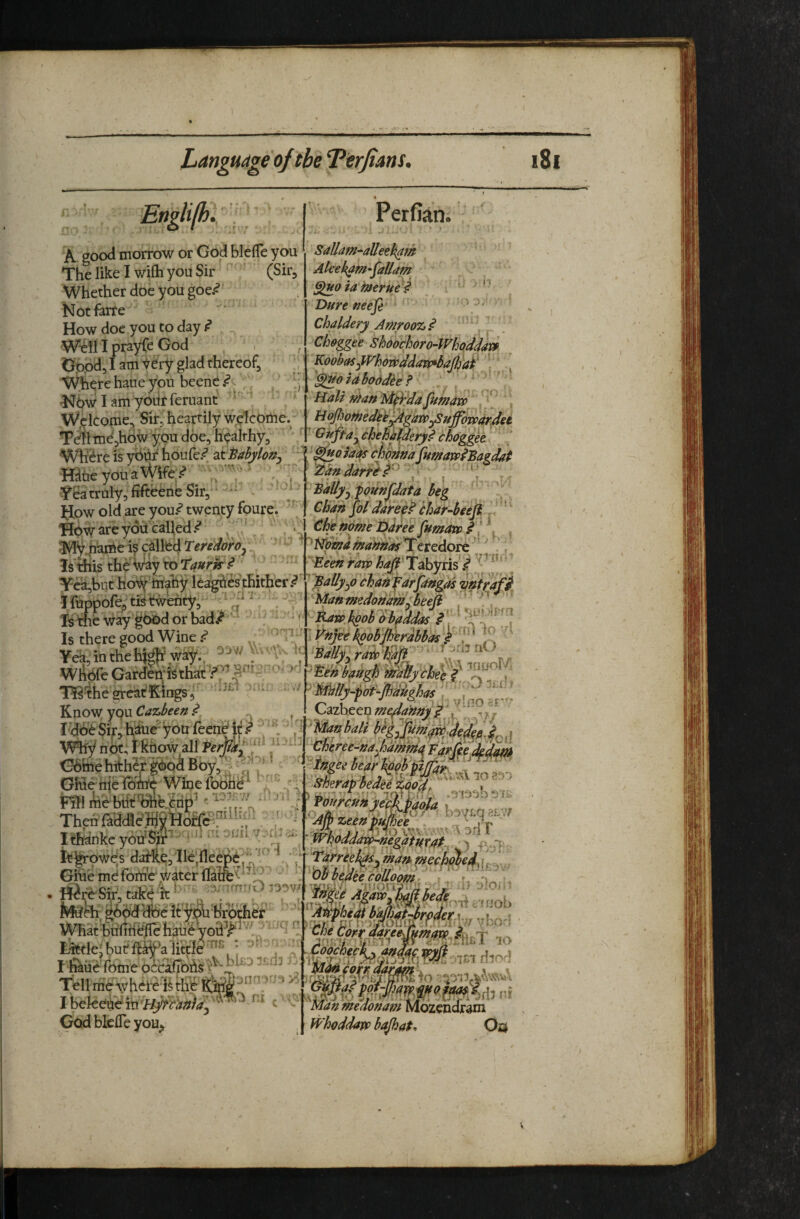 Language of the Persians. 181
English.
A good morrow or God blesse you
The like I wish you Sir (Sir,
Whether doe you goe?
Not farre
How doe you to day?
Well I prayse God
Good, I am very glad thereof,
Where haue you beene?
Now I am your seruant
Welcome, Sir, heartily welcome.
Tell me, how you doe, healthy,
Where is your house? at Babylon,
Haue you a Wife?
Yea truly, fifteene Sir,
How old are you? twenty foure.
How are you called?
My name is called Teredoro,
Is this the way to Tauris?
Yea, but how many leagues thither?
I suppose, tis twenty,
Is the way good or bad?
Is there good Wine?
Yea, in the high way.
Whose Garden is that?
Tis the great Kings,
Know you Cazbeen?
I doe Sir, haue you seene it?
Why not, I know all Persia,
Come hither good Boy,
Giue me some Wine soone
Fill me but one cup
Then saddle my Horse
I thanke you Sir
It growes darke, Ile sleepe
Giue me some water slaue
Here Sir, take it
Much good doe it you Brother
What businesse haue you?
Little, but stay a little
I haue some occasions
Tell me where is the King
I beleeue in Hyrcania,
God blesse you,
Persian.
Sallam-alleekam
Aleekam-sallam
Quo ia merue?
Dure neese
Chaldery Amrooz?
Choggee Shoochoro-Whoddaw
Koobas, Whowddaw-bashat
Quo ia boodee?
Hali man Merda sumaw
Hoshomedee, Agaw, Suffowardee
Gusta, chehaldery? choggee
Quo iaas chonna sumaw? Bagdat
Zan darre?
Bally, pounsdata beg
Chan sol daree? char-beest
Che nome Daree sumaw?
Noma mannas Teredore
Een raw hast Tabyris?
Bally, o chan Farsangas untras?
Man medonam, beest
Raw koob o baddas?
Vnjee koob sherabbas?
Bally, raw hast
Een baugh mally chee?
Mally-pot-shaughas
Cazbeen medanny?
Man bali beg, sumaw dedee?
Cheree-na, hamma Farsee dedam
Ingee bear koob pissar
Sherap bedee zood
Pourcun yeck paola
Ash zeen pushee
Whoddaw-negaturat
Tarreekas, man mechobed
Ob bedee colloom
Ingee Agaw, hast bede
Awpheat bashat-broder
Che Corr daree sumaw?
Coocheck, andac wyst
Man corr daram
Gusta? pot-shaw quo iaas?
Man medonam Mozendram
Whoddaw bashat. On